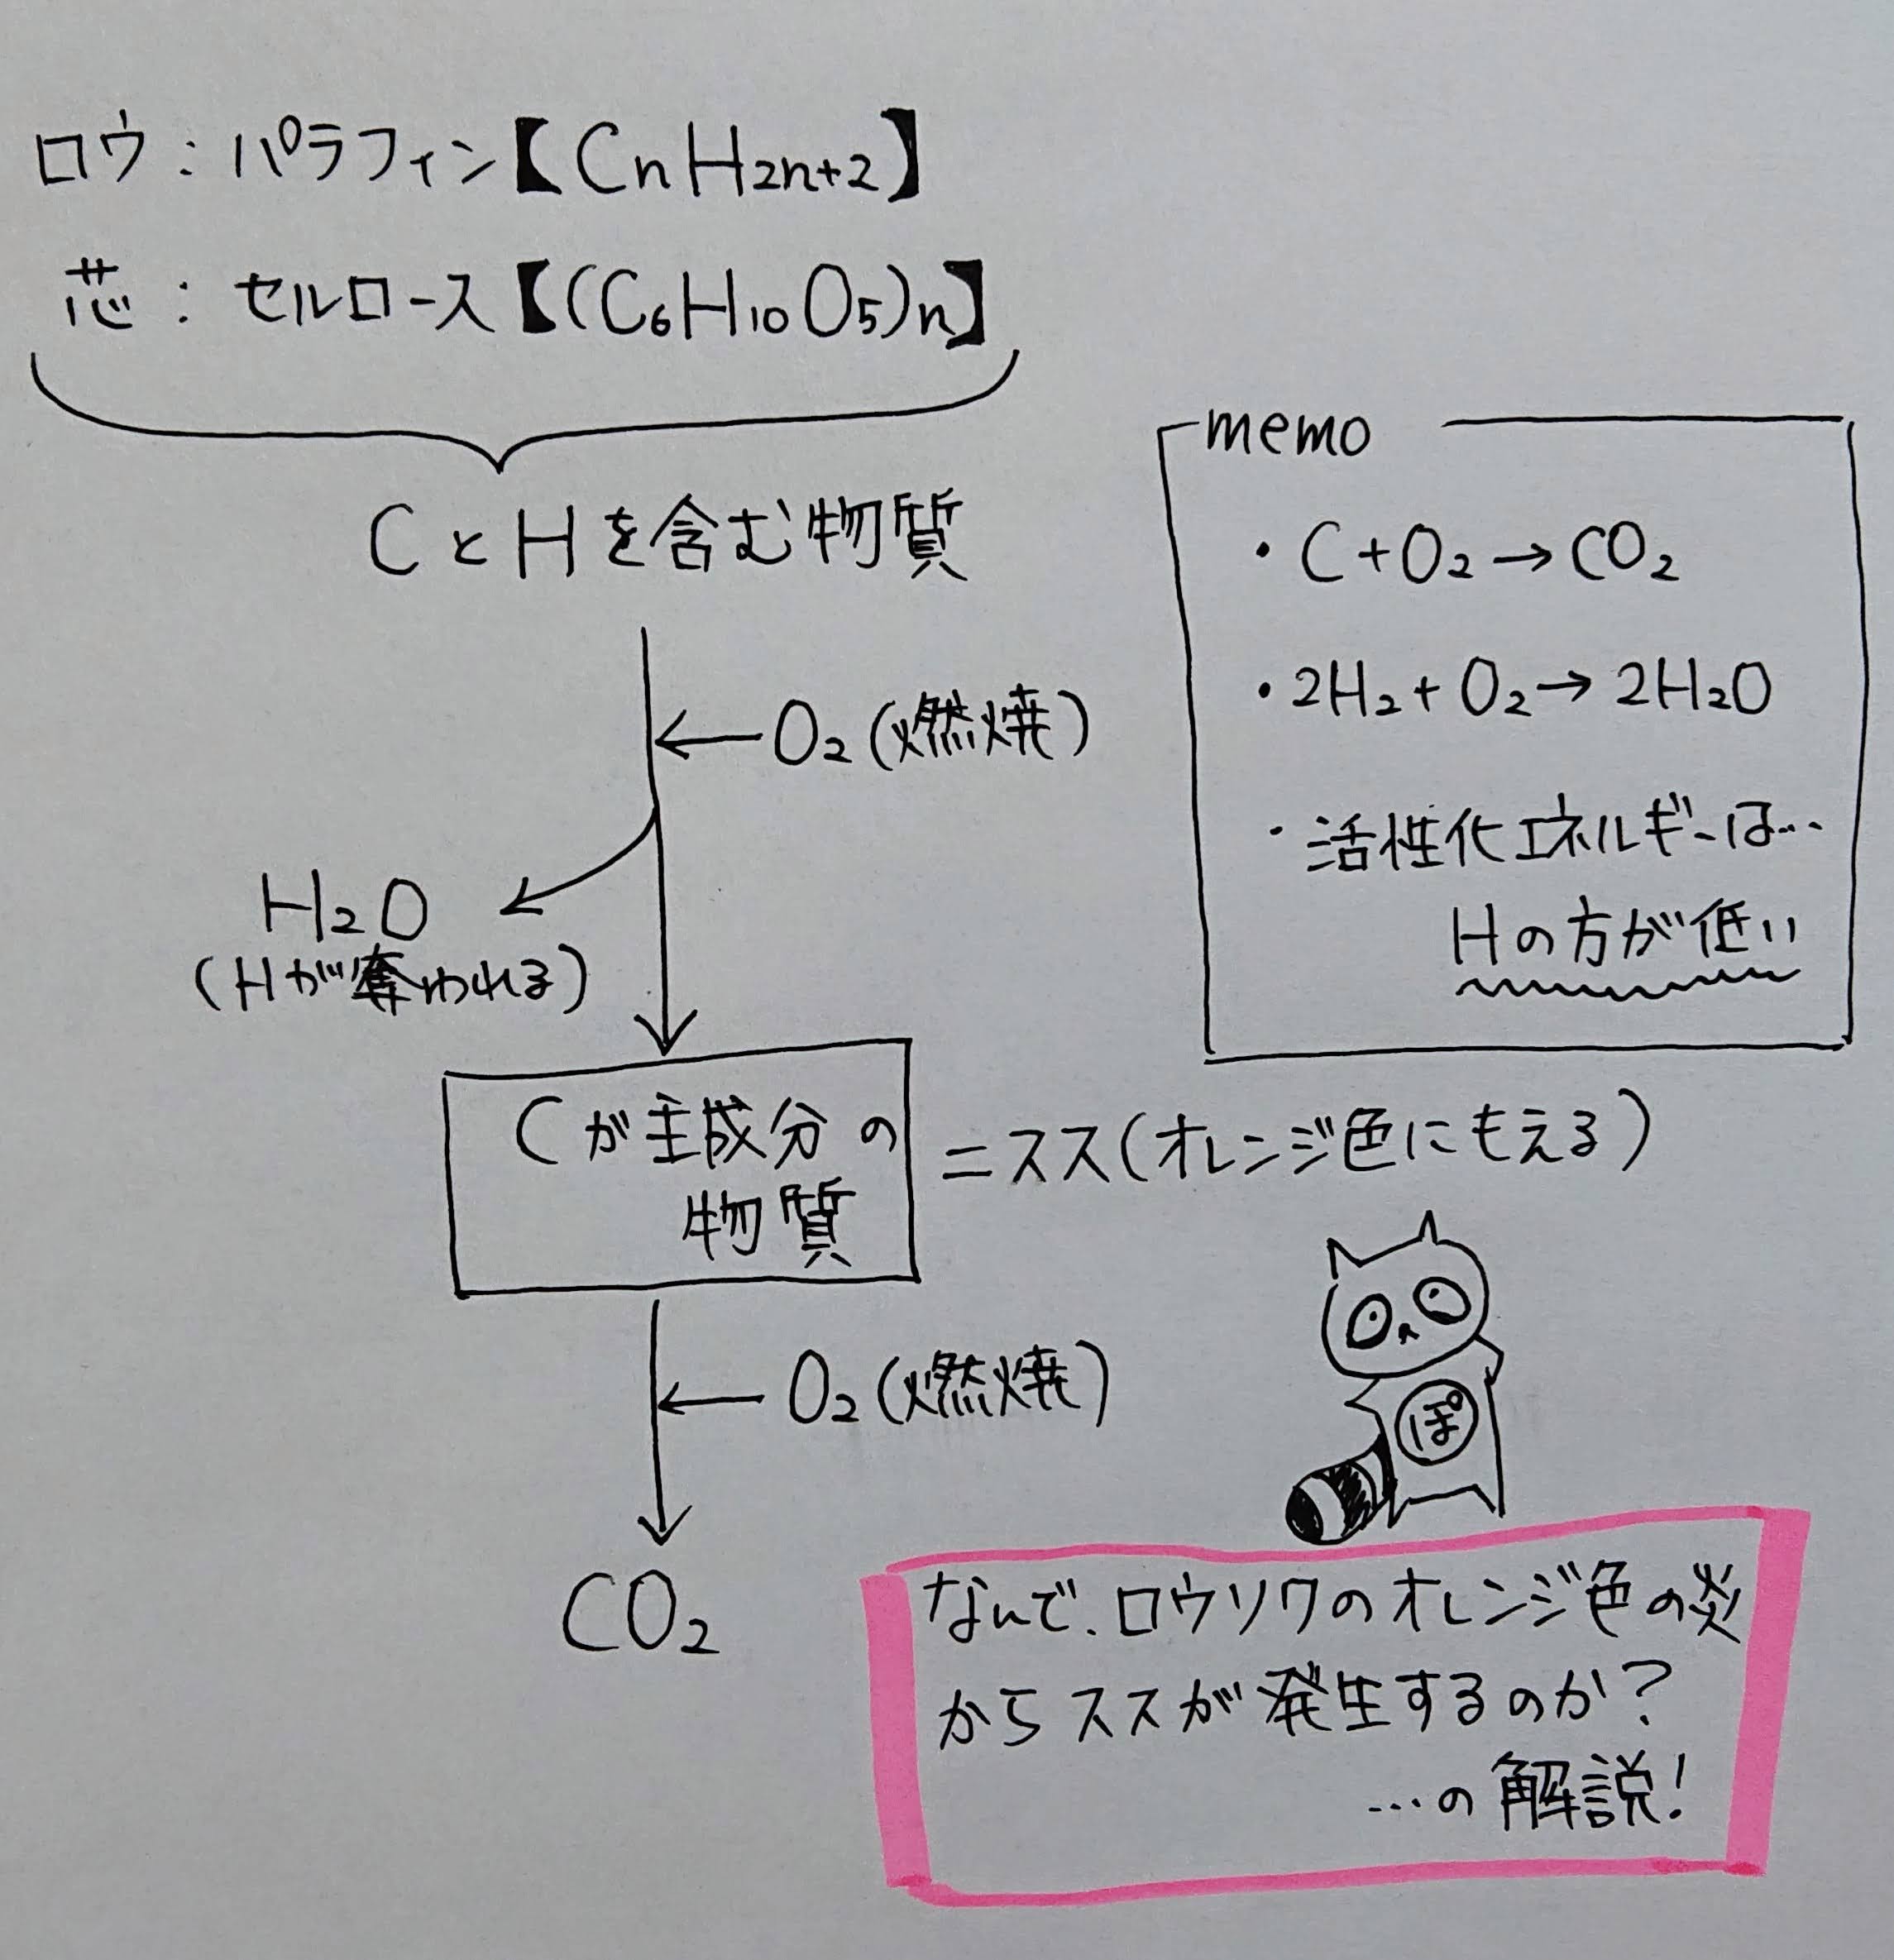 ロウ：パラフィン【CnH2n+2】
芯：セルロース【(C6H10O5)n】
CとHを含む物質
O2(燃焼)
H2O
(Hが奪われる)
memo
・C+O2→CO2
・2H2+O2→2H2O
・活性化エネルギーは…
Hの方が低い
Cが主成分の
物質
=スス(オレンジ色にもえる)
O2(燃焼)
CO2
ぽ
なんで、ロウソクのオレンジ色の炎
からススが発生するのか?
…の解説!